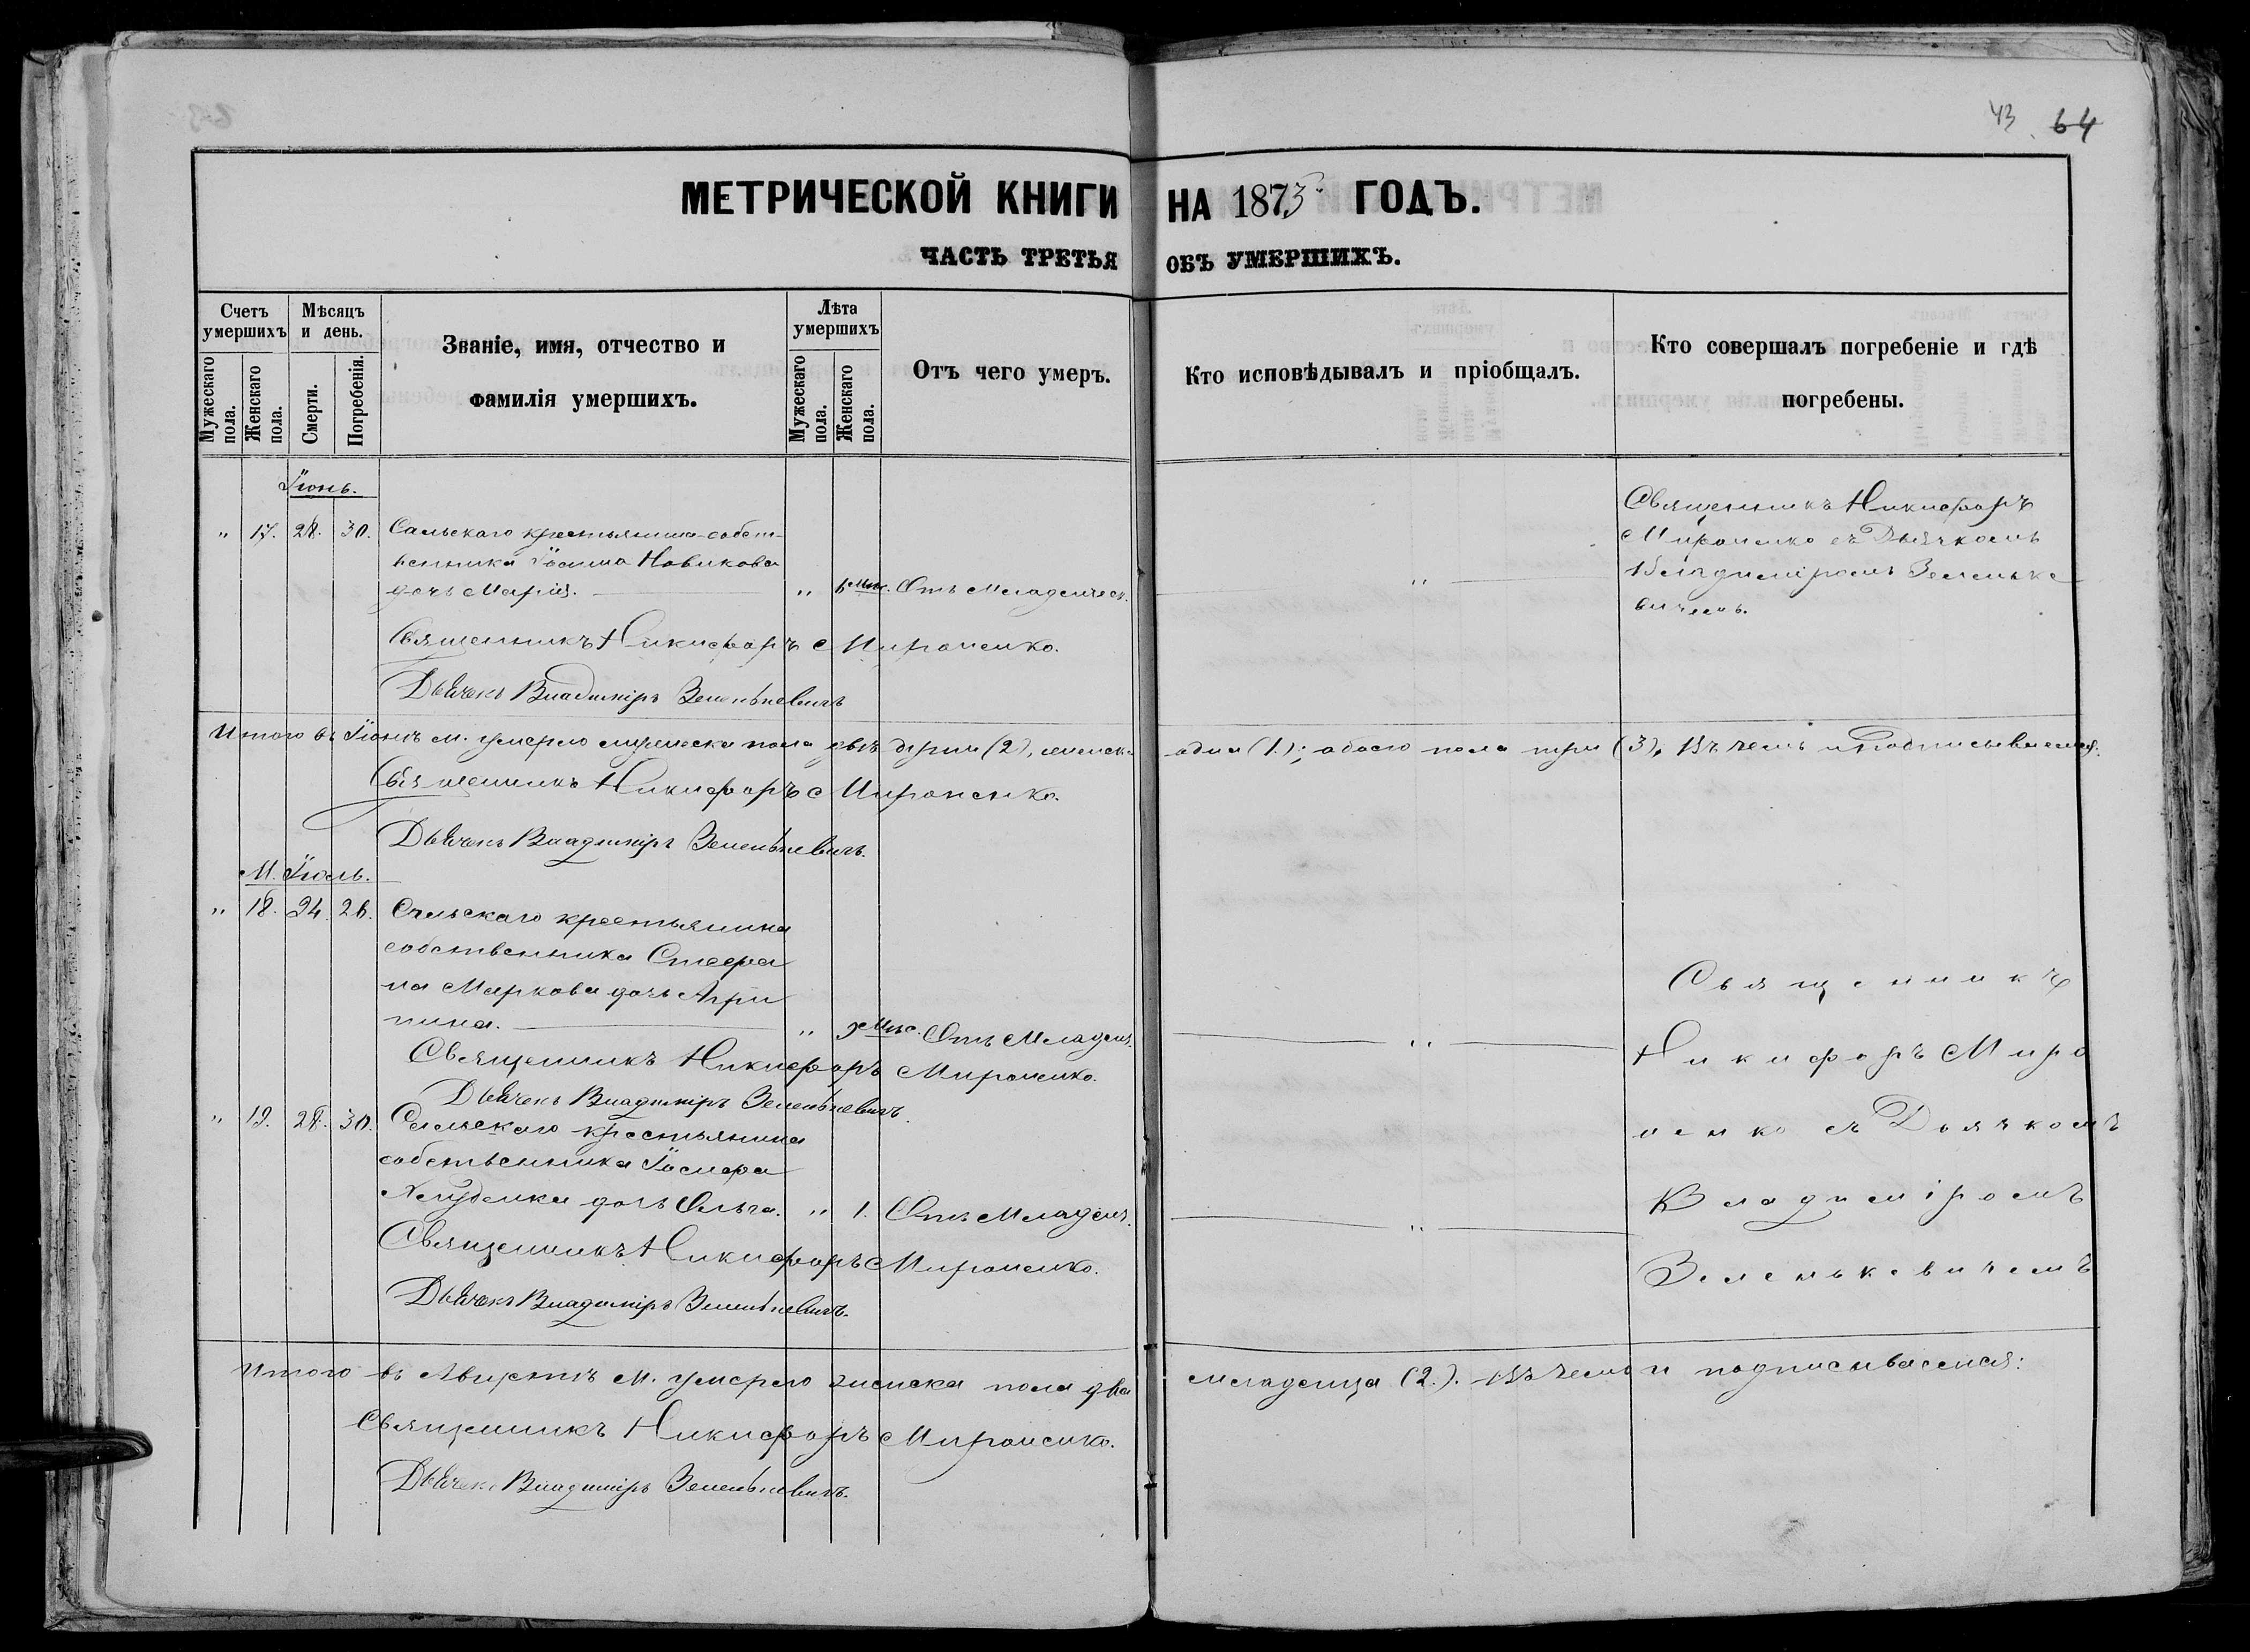 43. 64
МЕТРИЧЕСКОЙ КНИГИ НА 1875 ГОДЪ.
ЧАСТЬ ТРЕТЬЯ ОБЪ УМЕРШИХЪ.
Счетъ умершихъ
Мѣсяцъ и день.
Званіе, имя, отчество и фамилія умершихъ.
Лѣта умершихъ
Отъ чего умеръ.
Кто исповѣдывалъ и пріобщалъ.
Кто совершалъ погребеніе и гдѣ погребены.
Мужескаго пола.
Женскаго пола.
Смерти.
Погребенія.
Мужескаго пола.
Женскаго пола.
Іюнь.
" 17. 28. 30. Сальскаго крестьянина-собст-
венника Новикова
дочь Марія. " 6 мѣс. Отъ Младенческ. "
Священникъ Никифоръ
Мироненко съ Дьячкомъ
Владиміромъ Зеленьке
вичемъ.
Священникъ Никифоръ Мироненко.
Дьячекъ Владиміръ Зеленькевичъ
Итого въ Іюнѣ м. умерло мужеска пола двѣ души (2), женска одна (1.); обоего пола три (3), Въ чемъ и подписываемся:
Священникъ Никифоръ Мироненко.
Дьячекъ Владиміръ Зеленькевичъ.
М. Іюль.
" 18. 24. 26. Сальскаго крестьянина
собственника Стефа
на Маркова дочь Агри
пина. " 9 Мѣс. Отъ Младенч. "
Священникъ Никифоръ Мироненко.
Дьячекъ Владиміръ Зеленькевичъ.
" 19. 28. 30. Сальскаго крестьянина
собственника Іосифа
дочь Ольга. " 1. Отъ Младенч. "
Священникъ
Никифоръ Миро
ненко съ Дьячкомъ
Владиміромъ
Зеленькевичемъ
Священникъ Никифоръ Мироненко.
Дьячекъ Владиміръ Зеленькевичъ.
Итого въ Августѣ М. умерло женска пола два младенца (2.). Въ чемъ и подписываемся:
Священникъ Никифоръ Мироненко.
Дьячекъ Владиміръ Зеленькевичъ.